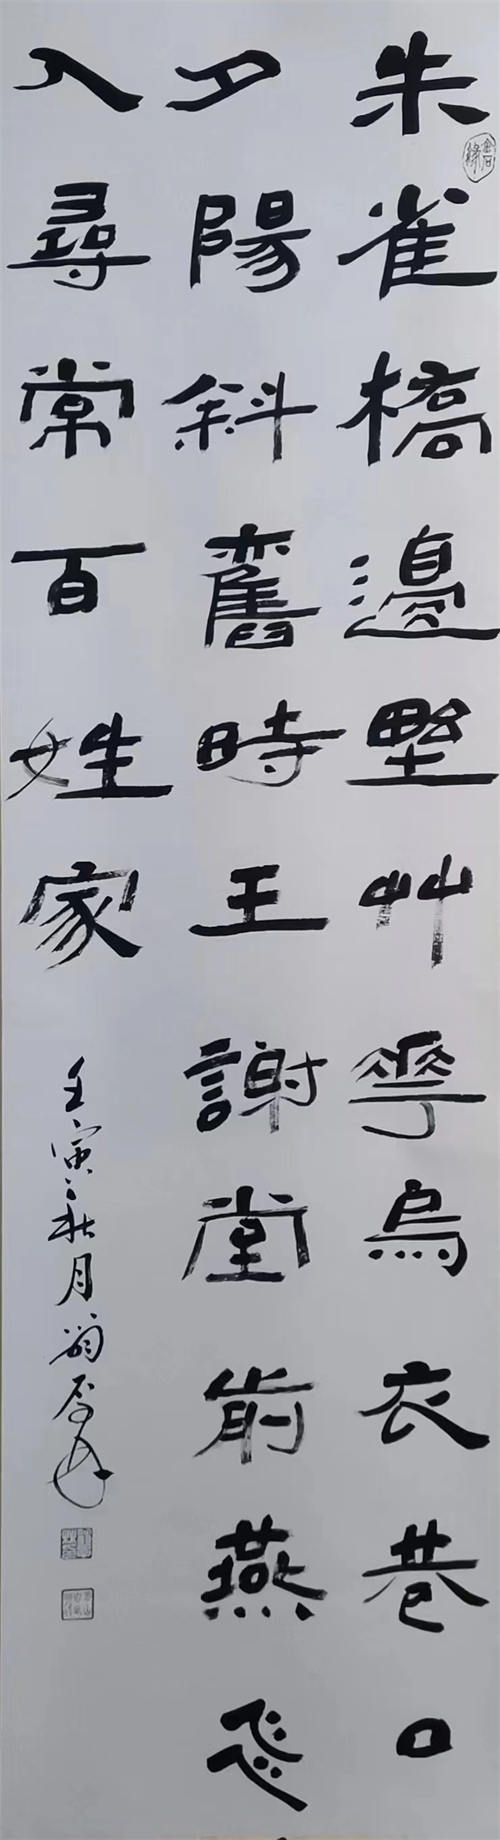 朱雀橋邊墅艸華烏衣巷口
夕陽斜舊時王謝堂前燕飛
入尋常百姓家
壬寅之秋月翁